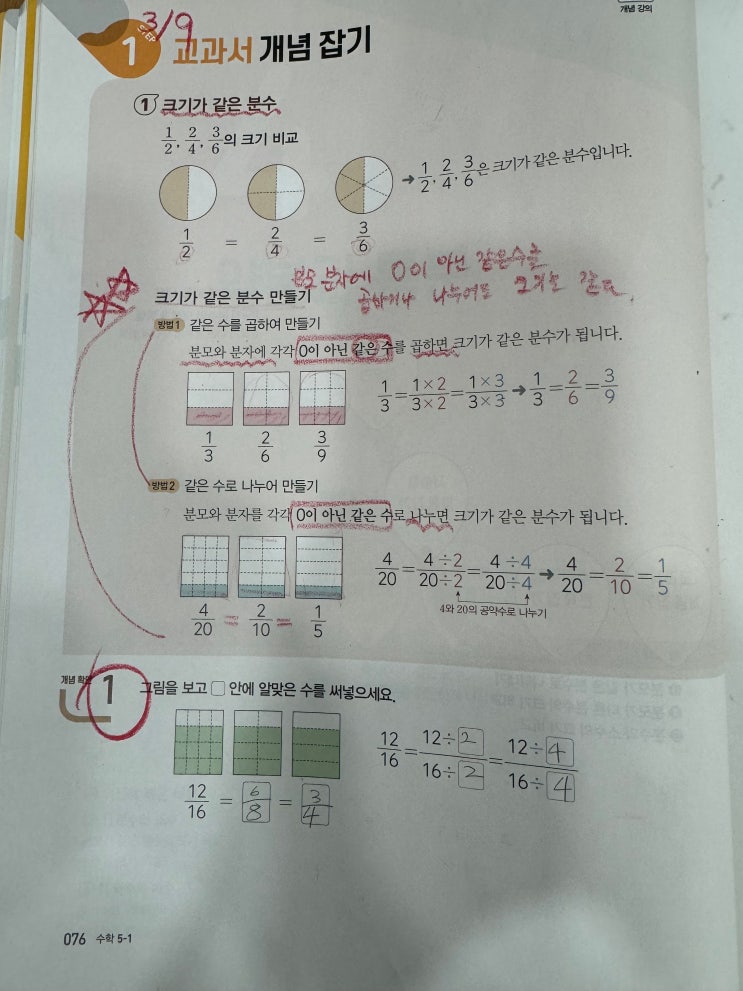 개념 강의
3/9
STEP 1 교과서 개념 잡기
1 크기가 같은 분수
1/2, 2/4, 3/6의 크기 비교
→ 1/2, 2/4, 3/6은 크기가 같은 분수입니다.
1/2 = 2/4 = 3/6
분모 분자에 0이 아닌 같은수를
곱하거나 나누어도 크기는 같다.
크기가 같은 분수 만들기
방법1 같은 수를 곱하여 만들기
분모와 분자에 각각 0이 아닌 같은 수를 곱하면 크기가 같은 분수가 됩니다.
1/3 = 1×2/3×2 = 1×3/3×3 → 1/3 = 2/6 = 3/9
1/3 2/6 3/9
방법2 같은 수로 나누어 만들기
분모와 분자를 각각 0이 아닌 같은 수로 나누면 크기가 같은 분수가 됩니다.
4/20 = 4÷2/20÷2 = 4÷4/20÷4 → 4/20 = 2/10 = 1/5
4와 20의 공약수로 나누기
4/20 = 2/10 = 1/5
개념 확인 1 그림을 보고 □ 안에 알맞은 수를 써넣으세요.
12/16 = 12÷2/16÷2 = 12÷4/16÷4
12/16 = 6/8 = 3/4
076 수학 5-1